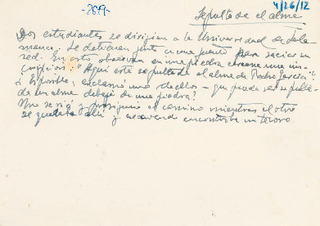 -2899-
4/26/12
Sepultado el alma
Dos estudiantes se dirigian a la Universidad de Sala-
manca. Se detienen junto a una fuente para saciar su
red. En esto observan en una piedra
cripcion: "Aqui está sepultada el alma de Pedro Garcia".
¿Es posible, exclamó uno de ellos - que pueda ser sepulta-
da un alma debajo de una piedra?
Uno se rió y prosiguió el camino mientras el otro
se quedaba alli y encontraba un tesoro